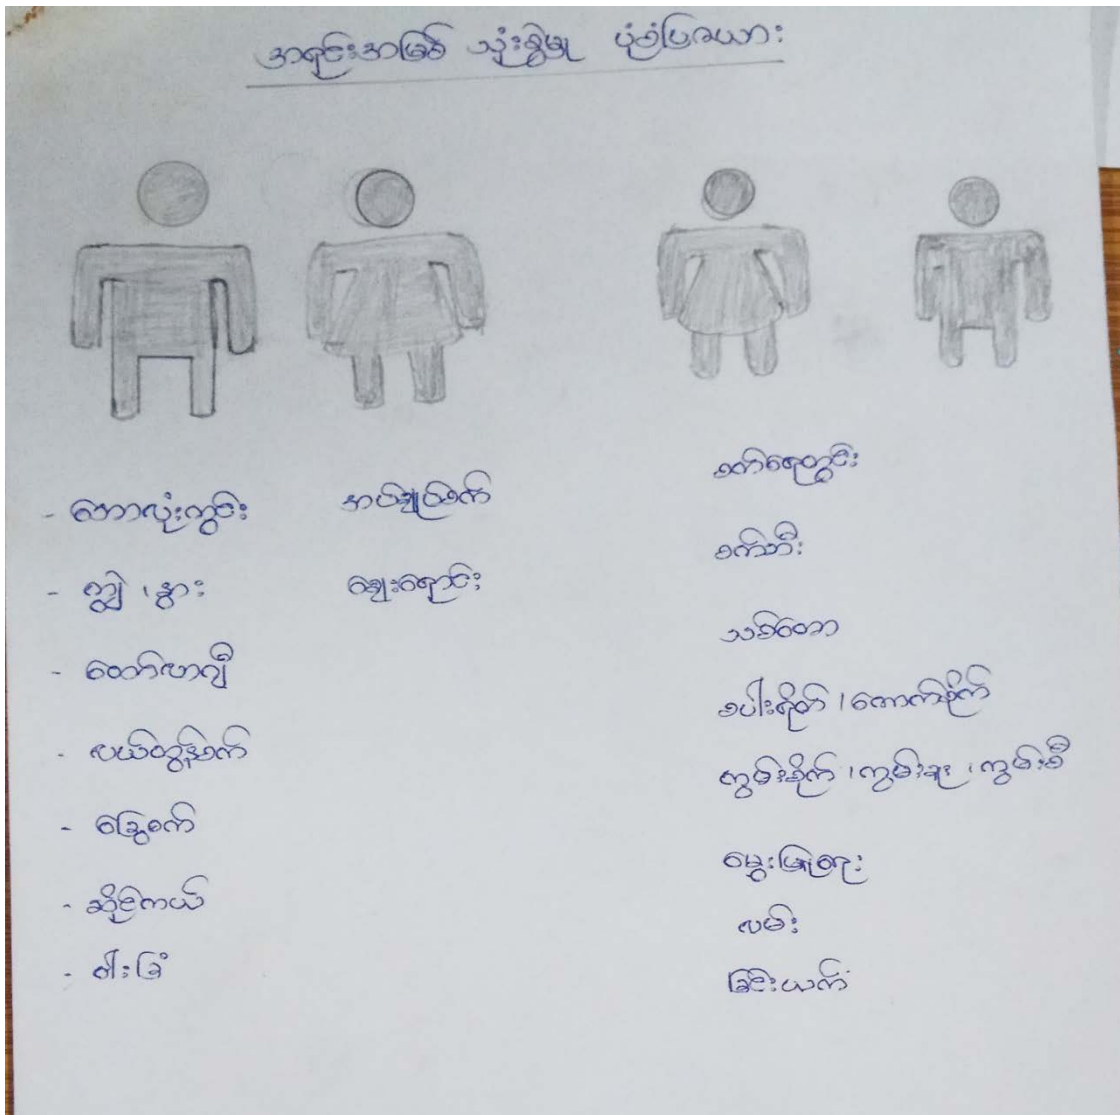 အရင်းအမြစ် သုံးစွဲမှု ပုံစံပြဇယား
- ဘောလုံးကွင်း
- ကျွဲ ၊ နွား
- ထော်လာဂျီ
- လယ်ထွန်စက်
- ခြွေစက်
- ဆိုင်ကယ်
- ဝါးခြံ
အပ်ချုပ်စက်
ဈေးရောင်း
စက်ရေတွင်း
စက်ဘီး
သစ်တော
စပါးရိတ် ၊ ကောက်စိုက်
ကွမ်းစိုက် ၊ ကွမ်းခူး ၊ ကွမ်းစီ
မွေးမြူရေး
လမ်း
ခြင်းယက်